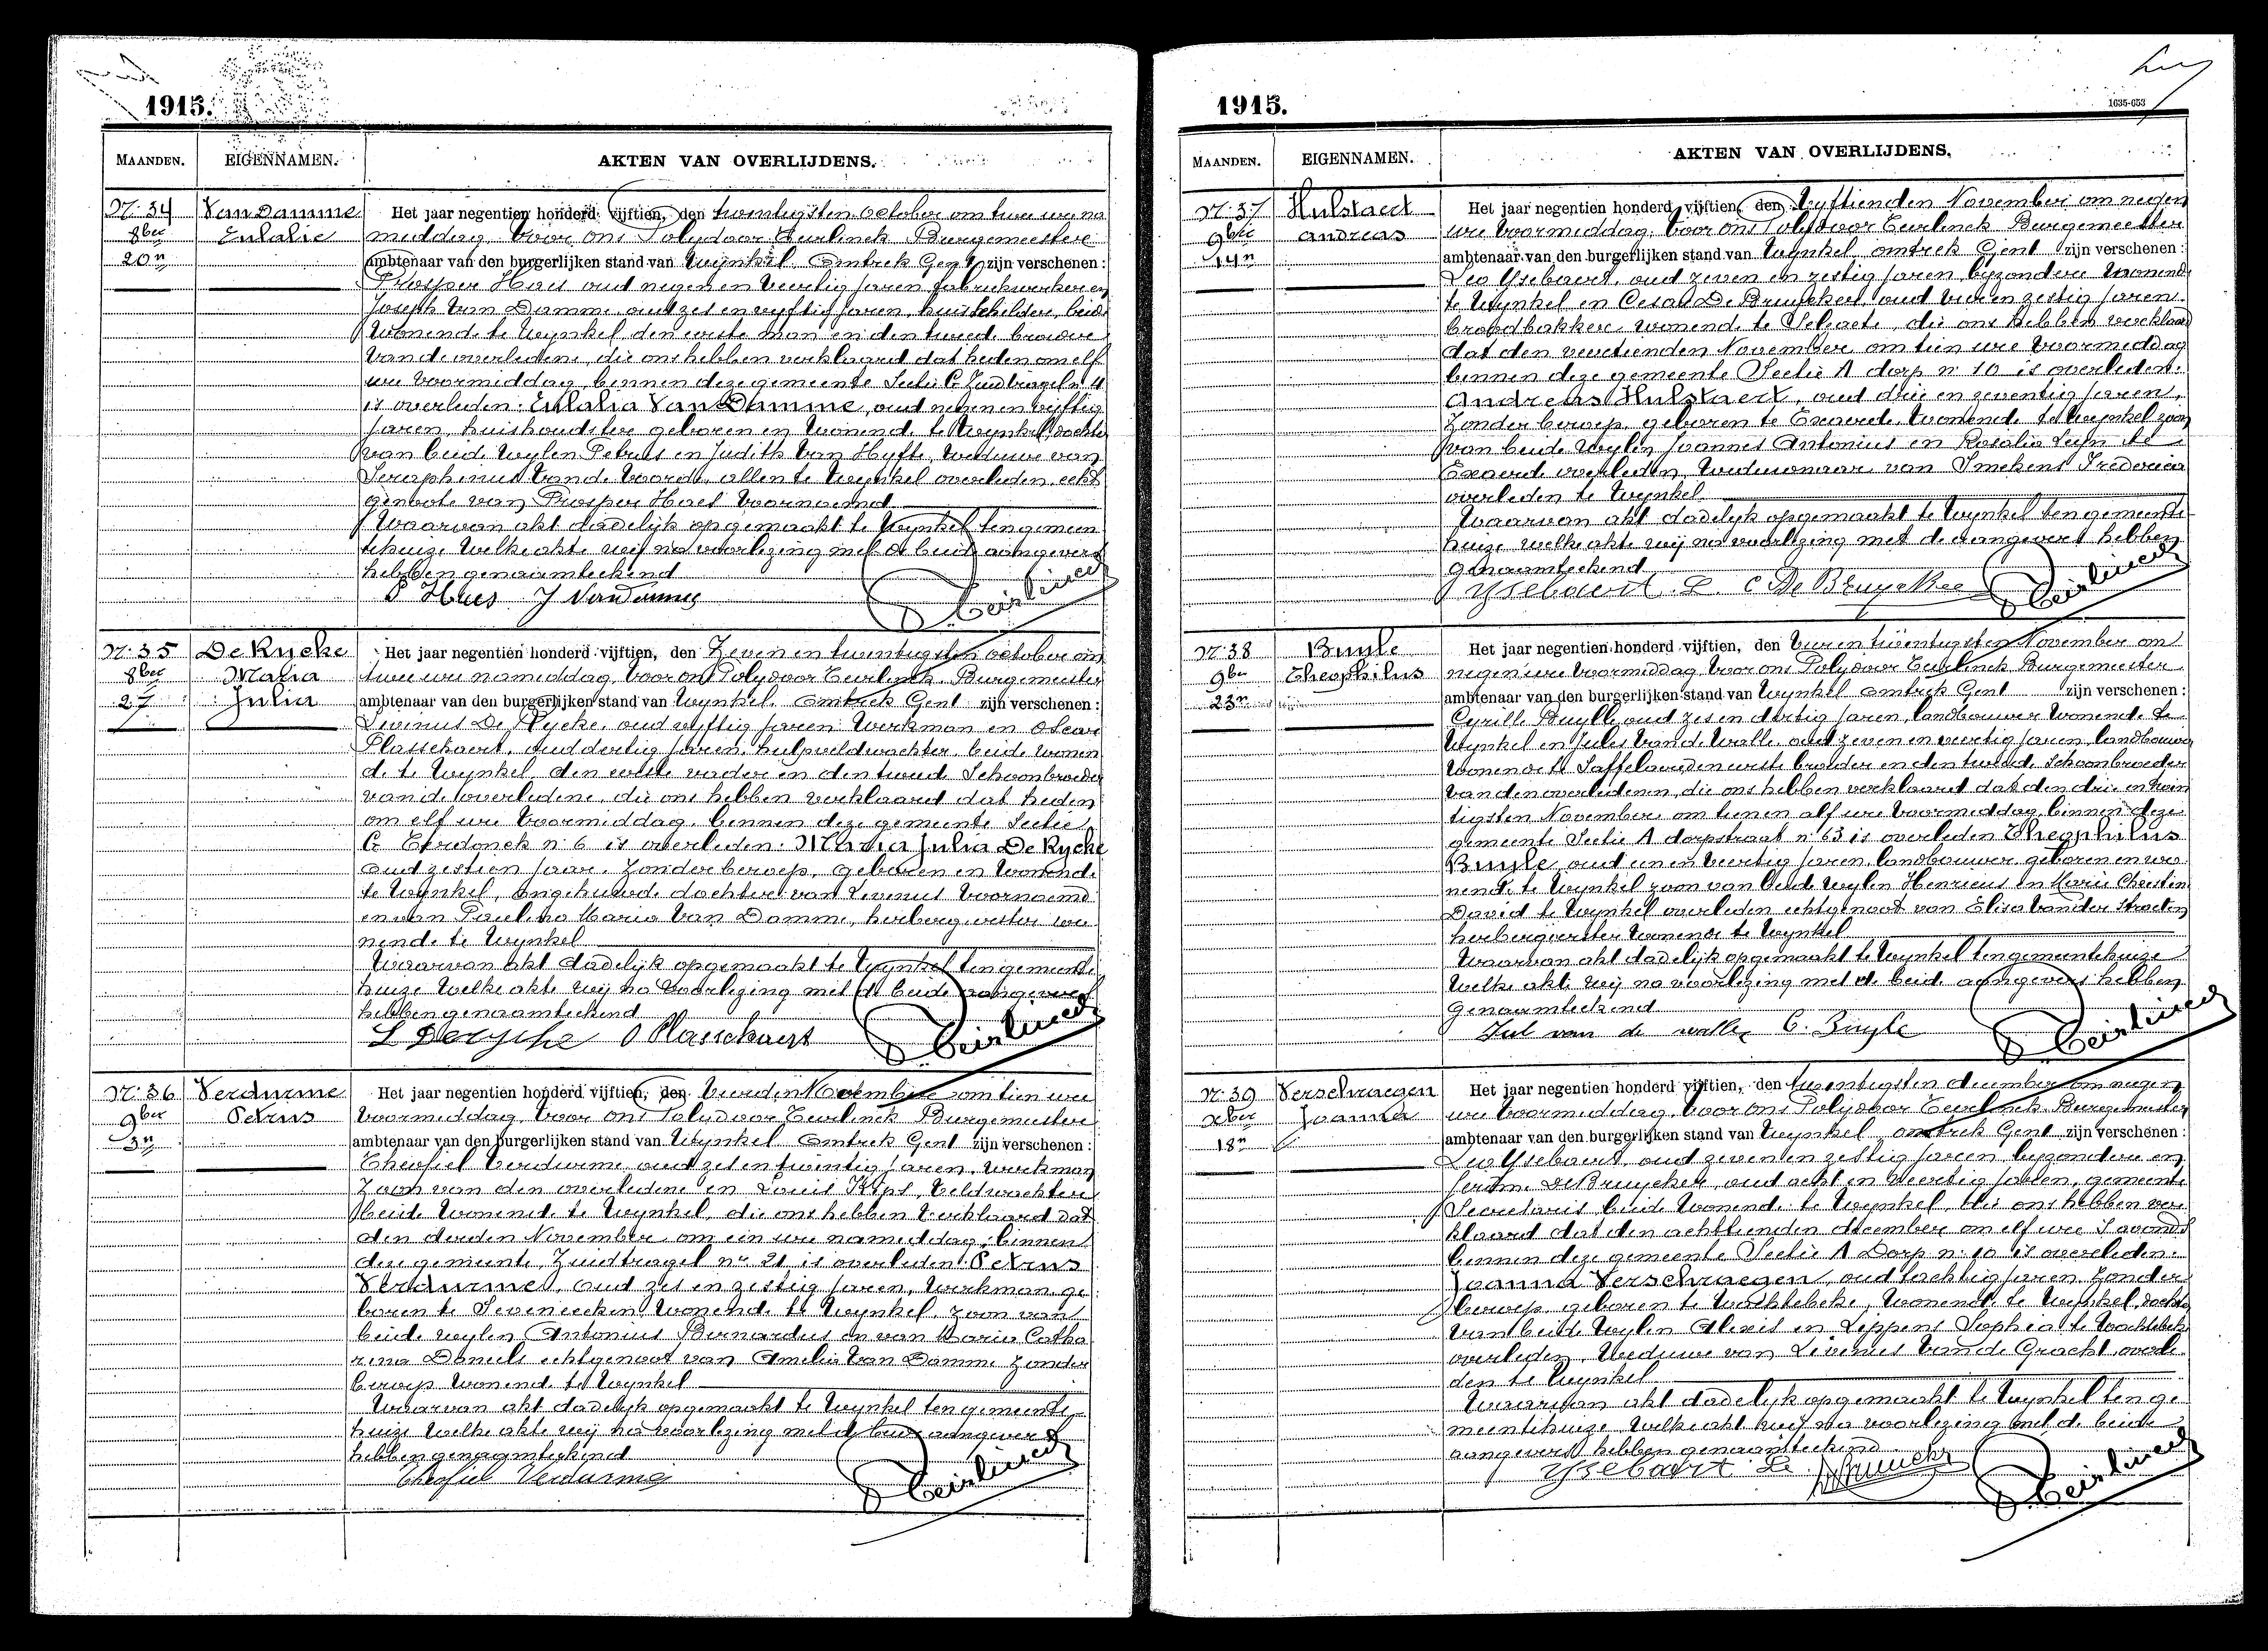 1915.
MAANDEN. EIGENNAMEN. AKTEN VAN OVERLIJDENS.
N: 34 Van Damme Het jaar negentien honderd vijftien, den twintigsten October om twee ure na
8ber Eulalie middag, voor ons Polydoor Teirlinck Burgemeester
20n ambtenaar van den burgerlijken stand van Wynkel omtrek Gent zijn verschenen:
Prosper Haes oud negen en veertig jaren fabriekwerker en
Joseph Van Damme oud zes en vyftig jaren, huisschilder, beide
Wonende te Wynkel, den eerste man en den tweede broeder
van de overledene, die ons hebben verklaard dat heden om elf
ure voormiddag, binnen deze gemeente Sectie C Zuidbragel n 4
is overleden: Eulalia Van Damme, oud negen en vyftig
jaren, huishoudster geboren en wonende te Wynkel, dochter
van beide wylen Petrus en Judith Van Hyfte, weduwe van
Seraphinus Van de Voorde, allen te Wynkel overleden, echt
genoote van Prosper Haes voornoemd
Waarvan akt dadelyk opgemaakt te Wynkel ten gemeen
tehuize Welke akte wij na voorlezing met de beide aangevers
hebben genaamteekend
P Haes J Van Damme
P. Teirlinck
N: 35 De Rycke Het jaar negentien honderd vijftien, den Zeven en twintigsten October om
8ber Maria twee ure namiddag, voor ons Polydoor Teirlinck Burgemeester
27 Julia ambtenaar van den burgerlijken stand van Wynkel, omtrek Gent zijn verschenen:
Livinus De Rycke, oud vyftig jaren Werkman en Oscar
Plasschaert, oud dertig jaren, hulpveldwachter, beide wonen
de te Wynkel, den eerste vader en den tweede Schoonbroeder
van de overledene, die ons hebben verklaard dat heden
om elf ure voormiddag, binnen deze gemeente Sectie
C n: 6 is overleden: Maria Julia De Rycke
oud zestien jaar, zonder beroep, geboren en wonende
te Wynkel, ongehuwde dochter van Livinus voornoemd
en van Paulina Maria Van Damme, herbergierster wo
nende te Wynkel
Waarvan akt dadelyk opgemaakt te Wynkel ten gemeente
huize Welke akte wij na voorlezing met de beide aangevers
hebben genaamteekend
L Derycke O Plasschaert
P. Teirlinck
N: 36 Verdurme Het jaar negentien honderd vijftien, den vierden November om tien ure
9ber Petrus voormiddag, voor ons Polydoor Teirlinck Burgemeester
3n ambtenaar van den burgerlijken stand van Wynkel omtrek Gent zijn verschenen:
Theofiel Verdurme oud zes en twintig jaren, werkman
Zoon van den overledene en Louis Kips, Veldwachter
beide wonende te Wynkel, die ons hebben verklaard dat
den derden November om een ure namiddag, binnen
deze gemeente, Zuidbragel nr 21 is overleden: Petrus
Verdurme, oud zes en zestig jaren, werkman ge
boren te Seveneecken wonende te Wynkel, zoon van
beide wylen Antonius Bernardus en van Maria Catha
rina Daneels echtgenoot van Amelia Van Damme zonder
beroep wonende te Wynkel
Waarvan akt dadelyk opgemaakt te Wynkel ten gemeente
huize Welke akte wij na voorlezing met de beide aangevers
hebben genaamteekend
Theofiel Verdurme
P. Teirlinck
1915.
1635-653
MAANDEN. EIGENNAMEN. AKTEN VAN OVERLIJDENS.
N: 37 Hulstaert Het jaar negentien honderd vijftien, den Vyftienden November om negen
9ber Andreas ure voormiddag, voor ons Polydoor Teirlinck Burgemeester
14n ambtenaar van den burgerlijken stand van Wynkel omtrek Gent zijn verschenen:
Leo Ysebaert, oud zeven en zestig jaren, byzondere wonende
te Wynkel en Cesar De Bruycker oud vier en zestig jaren
broodbakker wonende te Selzaete, die ons hebben verklaard
dat den veertienden November, om tien ure voormiddag
binnen deze gemeente Sectie A dorp n: 10 is overleden:
Andreas Hulstaert, oud drie en zeventig jaren,
zonder beroep, geboren te Exaerde, wonende te Wynkel zoon
van beide wylen Joannes Antonius en Rosalia te
Exaerde overleden, Weduwenaar van Smekens Frederica
overleden te Wynkel
Waarvan akt dadelyk opgemaakt te Wynkel ten gemeente
huize welke akte wij na voorlezing met de aangevers hebben
genaamteekend
Ysebaert L. C De Bruycker
P. Teirlinck
N: 38 Buyle Het jaar negentien honderd vijftien, den vier en twintigsten November om
9ber Theophilus negen ure voormiddag voor ons Polydoor Teirlinck Burgemeester
23n ambtenaar van den burgerlijken stand van Wynkel omtrek Gent zijn verschenen:
Cyrille Buylle oud zes en dertig jaren, landbouwer wonende te
Wynkel en Jules Van de Walle oud zeven en veertig jaren landbouwer
wonende te Saffelaere den eerste broeder en den tweede Schoonbroeder
van den overledenen, die ons hebben verklaard dat den drie en twin
tigsten November, om tienen alf ure voormiddag, binnen deze
gemeente Sectie A dorpstraat n: 63 is overleden Theophilus
Buyle, oud een en veertig jaren, landbouwer geboren en wo
nende te Wynkel zoon van beide wylen Henricus en Marie Christin
David te Wynkel overleden echtgenoot van Elisa Van der Straeten
herbergierster wonende te Wynkel
Waarvan akt dadelyk opgemaakt te Wynkel ten gemeentehuize
Welke akte wij na voorlezing met de beide aangevers hebben
Genaamteekend
Jul van de walle C. Buyle
P. Teirlinck
N: 39 Verschraegen Het jaar negentien honderd vijftien, den twentigsten december om negen
xber Joanna ure voormiddag, voor ons Polydoor Teirlinck Burgemeester
18n ambtenaar van den burgerlijken stand van Wynkel, omtrek Gent zijn verschenen:
Leo Ysebaert, oud zeven en zestig jaren byzondere en
De Bruycker, oud acht en veertig jaren, gemeente
Secretaris beide wonende te Wynkel, die ons hebben ver
klaard dat den achttienden december om elf ure s avonds
binnen deze gemeente Sectie A Dorp n: 10 is overleden:
Joanna Verschraegen, oud tachtig jaren zonder
beroep, geboren te Wachtebeke, wonende te Wynkel, dochter
van beide wylen Alexis en Lippens Sophia te Wachtebeke
overleden, Weduwe van Livinus Van de Gracht overle
den te Wynkel
Waarvan akt dadelyk opgemaakt te Wynkel ten ge
meentehuize, Welke akt wij na voorlezing met de beide
aangevers hebben genaamteekend
Ysebaert Le
P. Teirlinck